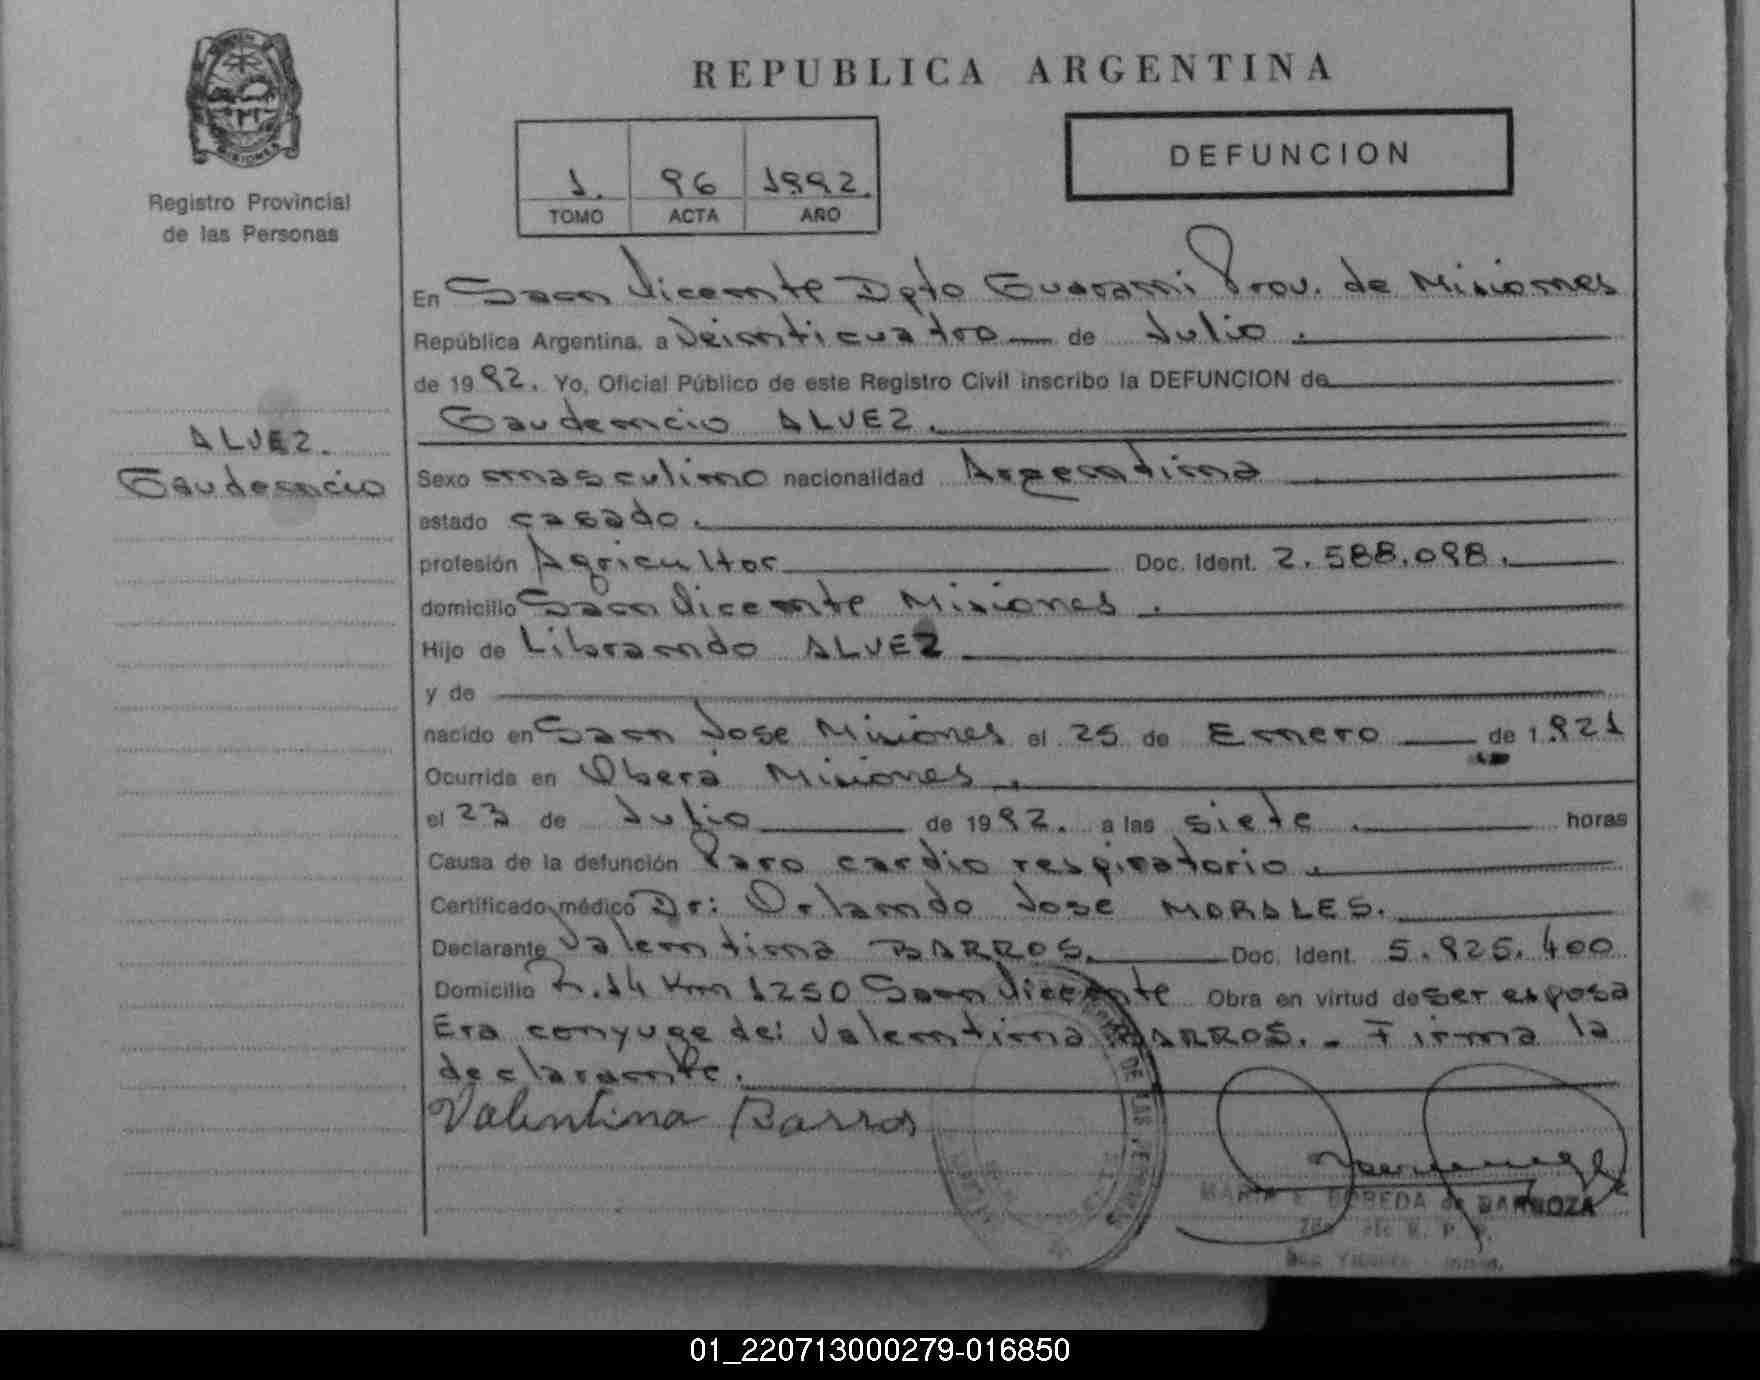 MISIONES
Registro Provincial
de las Personas
ALVEZ.
Gaudencio
REPUBLICA ARGENTINA
1. 96 1992.
TOMO ACTA AÑO
DEFUNCION
En San Vicente Dpto Guarani Prov. de Misiones
República Argentina, a Veinticuatro de Julio.
de 1992. Yo, Oficial Público de este Registro Civil inscribo la DEFUNCION de
Gaudencio ALVEZ.
Sexo masculino nacionalidad Argentina
estado casado.
profesión Agricultor Doc. Ident. 2.588.098.
domicilio San Vicente Misiones.
Hijo de Librando ALVEZ
y de
nacido en San Jose Misiones el 25 de Enero de 1.921
Ocurrida en Oberá Misiones.
el 23 de Julio de 1992. a las siete. horas
Causa de la defunción Paro cardio respiratorio.
Certificado médico Dr: Orlando Jose MORALES.
Declarante Valentina BARROS. Doc. Ident. 5.925.400
Domicilio R.14 Km 1250 San Vicente Obra en virtud de ser esposa
Era conyuge de: Valentina BARROS.- Firma la
declarante.
Valentina Barros
MARIA E. BOBEDA de BARBOZA
R. P. P.
San Vicente
01_220713000279-016850